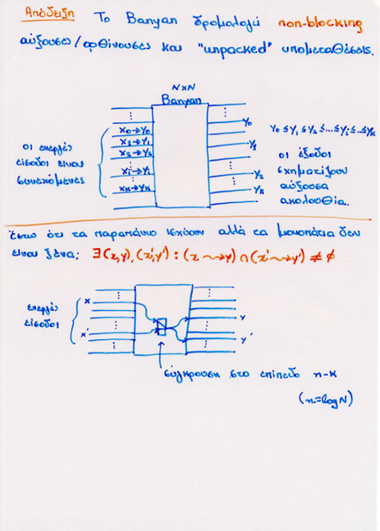 Απόδειξη Το Banyan δρομολογεί non-blocking
αύξουσες/φθίνουσες και "unpacked" υπομεταθέσεις.
N×N
Banyan
οι ενεργές
είσοδοι είναι
συνεχόμενες
x₀→y₀
x₁→y₁
x₂→y₂
xᵢ→yᵢ
xₖ→yₖ
y₀
y₁
y₂
yₖ
y₀ ≤ y₁ ≤ y₂ ≤...≤ yᵢ ≤...≤ yₖ
οι έξοδοι
σχηματίζουν
αύξουσα
ακολουθία.
Έστω ότι τα παραπάνω ισχύουν αλλά τα μονοπάτια δεν
είναι ξένα: ∃(x,y),(x',y') : (x⇝y) ∩ (x'⇝y') ≠ ∅
ενεργές
είσοδοι
x
x'
y
y'
σύγκρουση στο επίπεδο n-k
(n=logN)